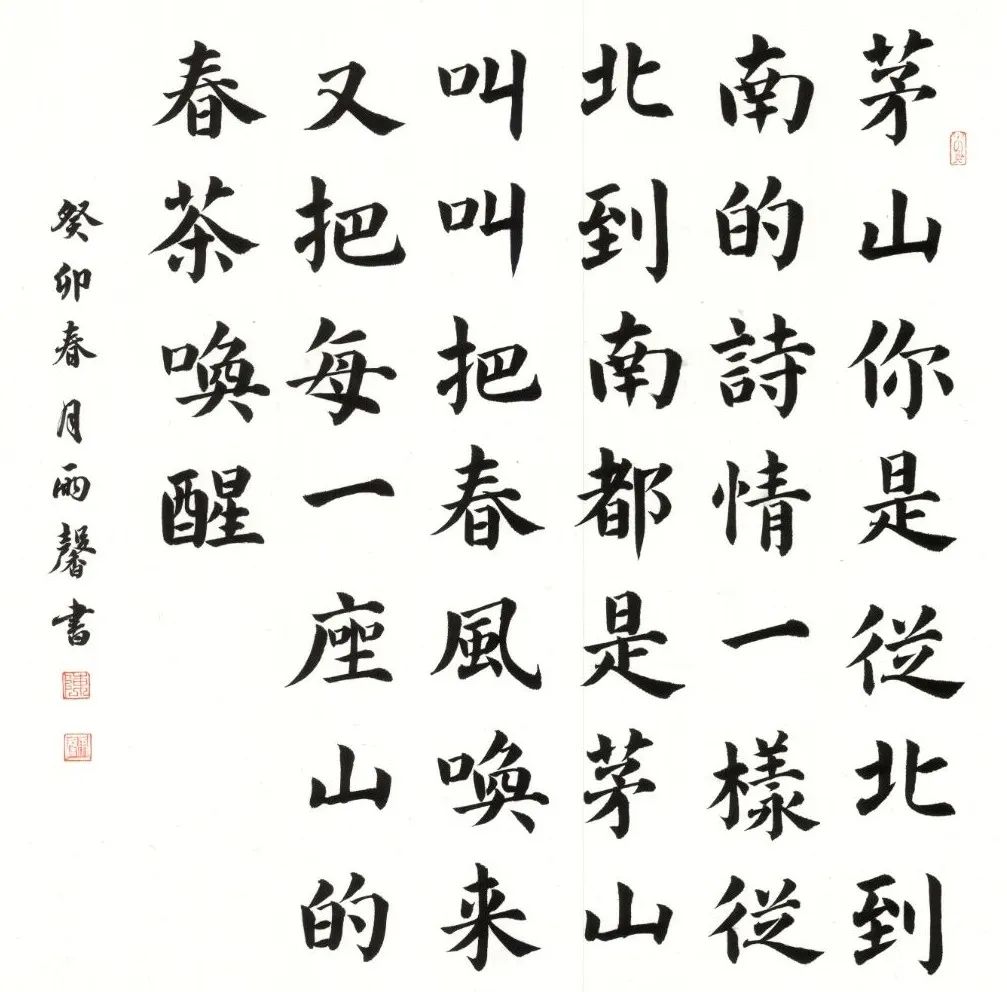 茅山你是從北到
南的詩情一樣從
北到南都是茅山
叫叫把春風喚来
又把每一座山的
春茶喚醒
癸卯春月雨馨书